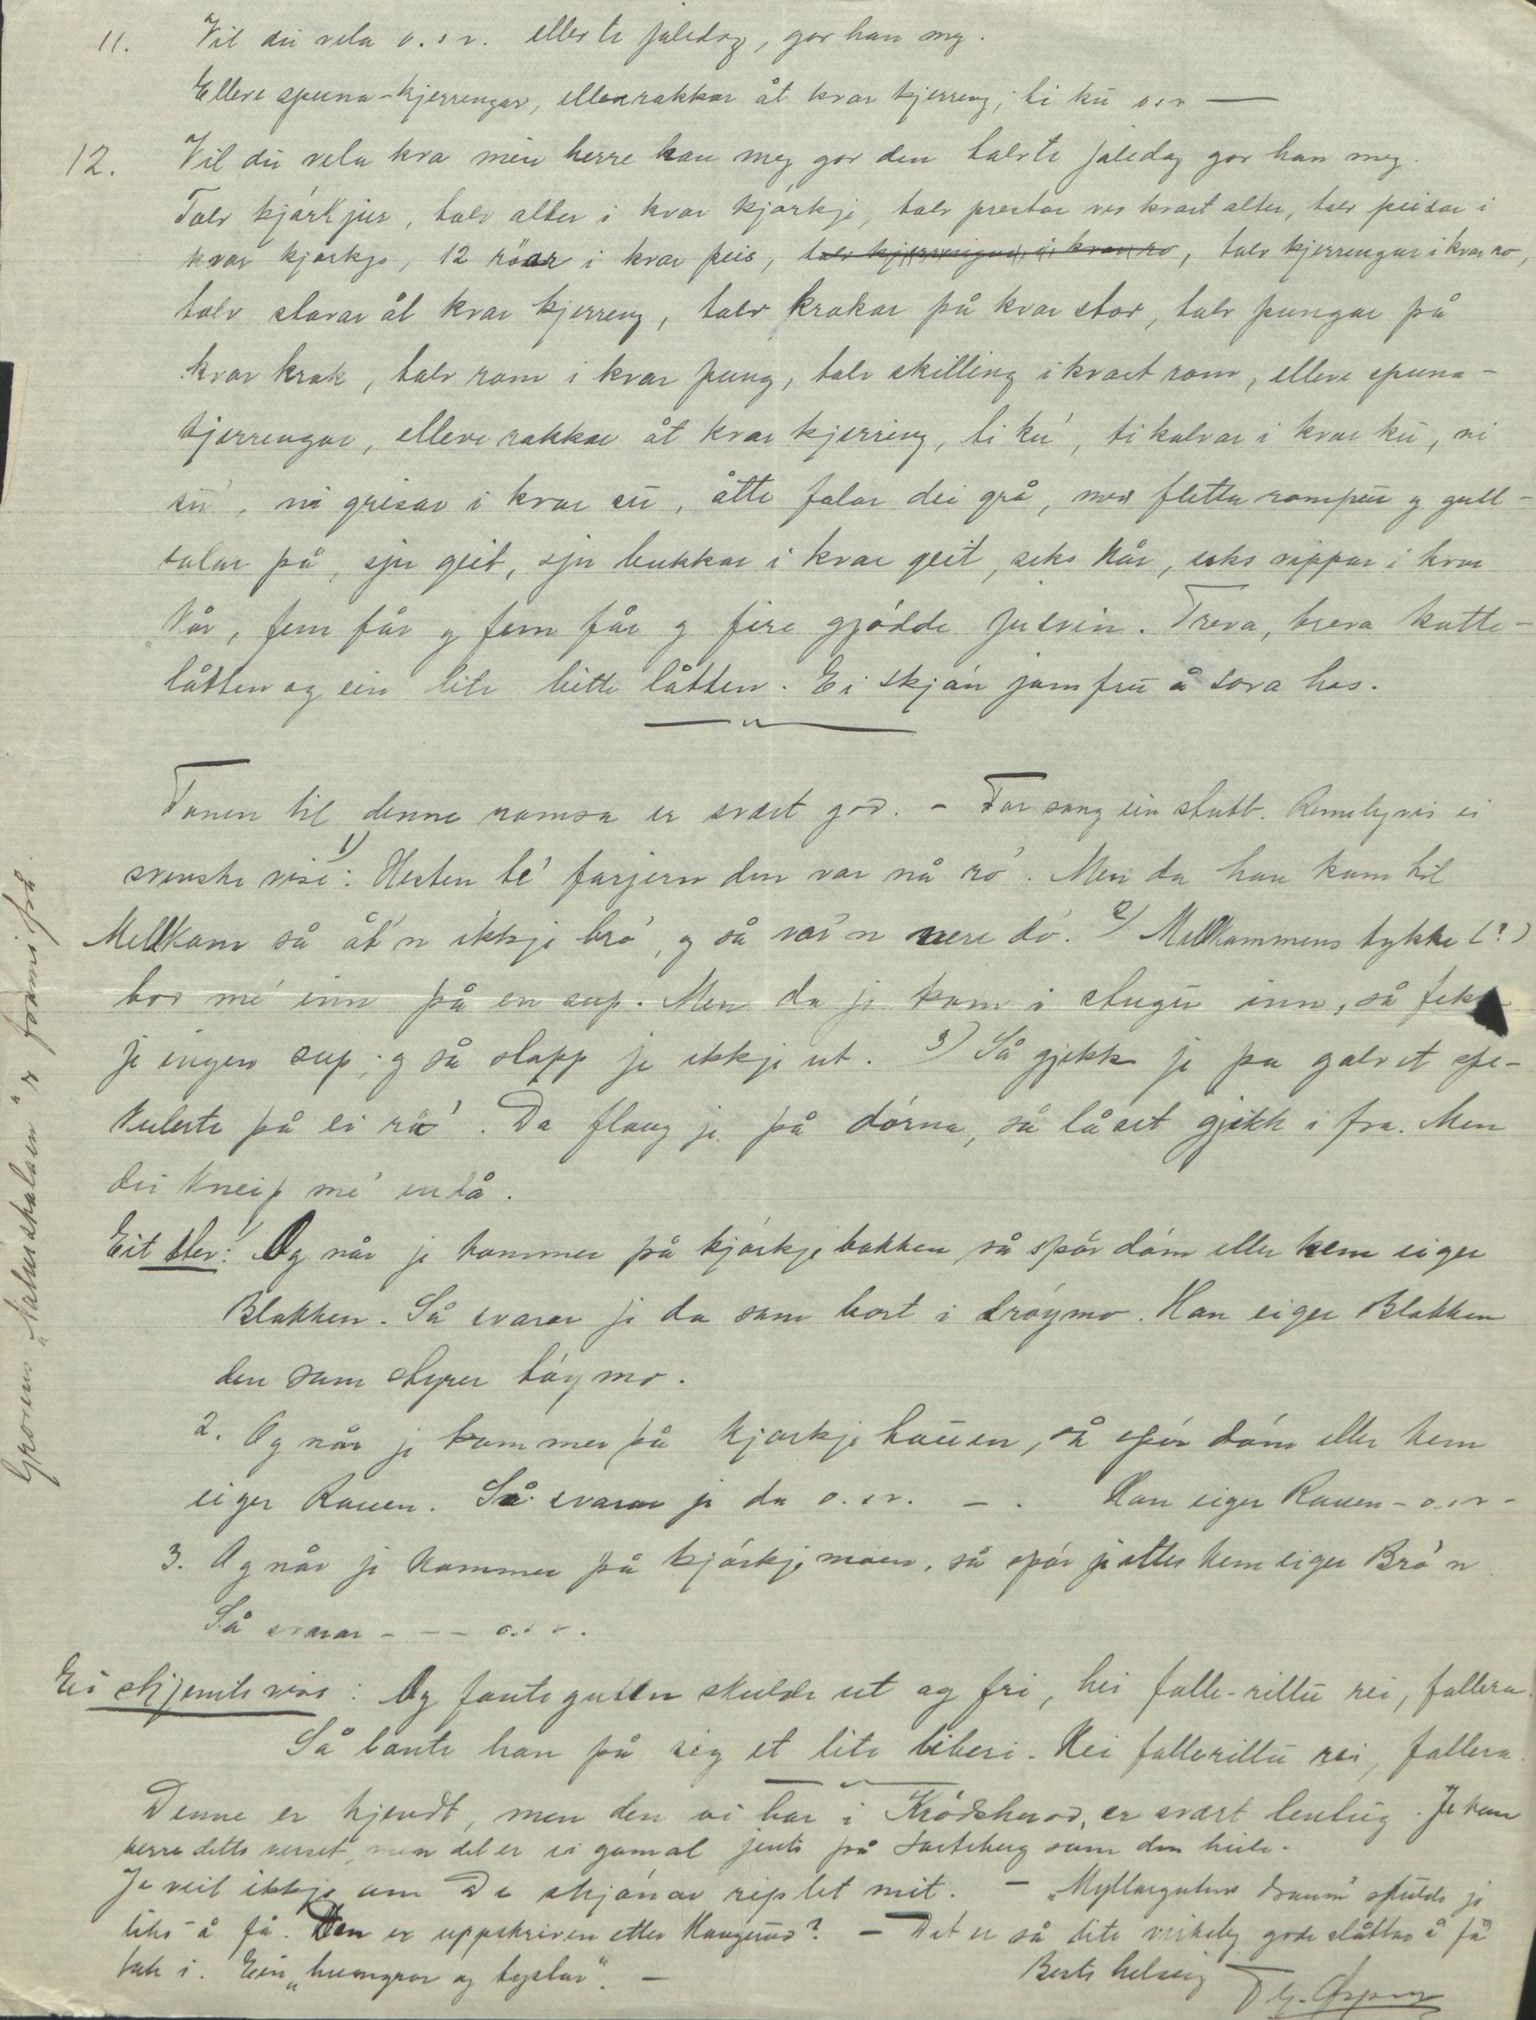 11. Vil du veta o.s v. ellevte joledag, gav han meg.
Elleve spuna-kjerringar, elleve rakkar åt kvar kjerring, ti ku o s v —
12. Vil du veta kva min herre han meg gav den talvte joledag gav han meg.
Talv kjørkjur, talv alter i kvar kjørkje, talv prestar ves kvart alter, talv peisar i
kvar kjørkje, 12 röar i kvar peis, talv kjerringar i kvar ro, talv kjerringar i kvar ro,
talv stavar åt kvar kjerring, talv krokar på kvar stav, talv pungar på
kvar krok, talv rom i kvar pung, talv skilling i kvart rom, elleve spuna-
kjerringar, elleve rakkar åt kvar kjerring, ti ku, ti kalvar i kvar ku, ni
su, ni grisar i kvar su, åtte folar dei grå, mes fletta rompu og gull-
salar på, sju geit, sju bukkar i kvar geit, seks kår, seks vippar i kvar
kår, fem får og fem får og fire gjødde julsvin. Treva, treva katte-
låtten og ein lite bitte låtten. Ei skjøn jomfru å sova hos.
Tonen til denne ramsa er svært god. – Far song ein stubb. Rimelegvis ei
svenske vise: 1) Hesten te' farjern den var nå ro'. Men da han kom til
Mellkam så åt'n ikkje brø', og så var'n nere dø'. 2) Mellkammens tykke (?)
bar me' inn på en sup. Men da je kom i stugu inn, så fekk
je ingen sup; og så slapp je ikkje ut. 3) Så gjekk je på galvet spe-
kulerte på ei rå'. Da flaug je på dørna, så låset gjekk i fra. Men
dei kneip me' endå.
Eit stev: 1) Og når je kommer på kjørkjebakken, så spør døm etter hem eiger
Blakken. Så svarar je da som bort i drøymo. Han eiger Blakken
den som styrer tøymo.
2. Og når je kommer på kjørkjehauen, så spør døm etter hem
eiger Rauen. Så svarar je da o. s v. – . Han eiger Rauen – o. s v –
3. Og når je kommer på kjørkjemoen, så spør je etter hem eiger Brø'n
Så svarar – – – o. s v.
Ei skjemtevise: Og fantegutten skulde ut og fri, hei falle-rillu rei, fallera
Så lånte han på seg et lite biberi – Hei fallerillu rei, fallera.
Denne er kjendt, men den vi har i Krødsherad, er svært lentug. Je kan
berre dette verset, men det er ei gomol jente på som den heile.
Je veit ikkje om De skjønar riplet mit. – „Myllargutens draum" skulde je
like å få. Den er uppskriven etter Haugerud? – Det er så lite verkeleg gode slåttar å få
tak i. Ein „humgrar og tyslar". –
Beste helsing
Grovens „Naturskalaen" er framifrå